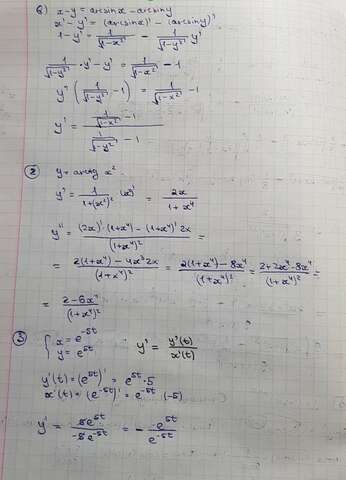 б) x-y = arcsinx - arcsiny
x' - y' = (arcsinx)' - (arcsiny)'
1 - y' = 1/√(1-x²) - 1/√(1-y²) y'
1/√(1-y²) · y' - y' = 1/√(1-x²) - 1
y' (1/√(1-y²) - 1) = 1/√(1-x²) - 1
y' = (1/√(1-x²) - 1)/(1/√(1-y²) - 1)
② y = arctg x²
y' = 1/(1+(x²)² (x²)' = 2x/(1+x⁴)
y'' = ((2x)'·(1+x⁴) - (1+x⁴)' 2x)/(1+x⁴)² =
= (2(1+x⁴) - 4x³2x)/(1+x⁴)² = (2(1+x⁴) - 8x⁴)/(1+x⁴)² = (2+2x⁴-8x⁴)/(1+x⁴)² =
= (2-6x⁴)/(1+x⁴)²
③ { x = e^(-5t)
y = e^(5t) y' = y'(t)/x'(t)
y'(t) = (e^(5t))' = e^(5t)·5
x'(t) = (e^(-5t))' = e^(-5t) (-5)
y' = 5e^(5t)/(-5e^(-5t)) = - e^(5t)/e^(-5t)